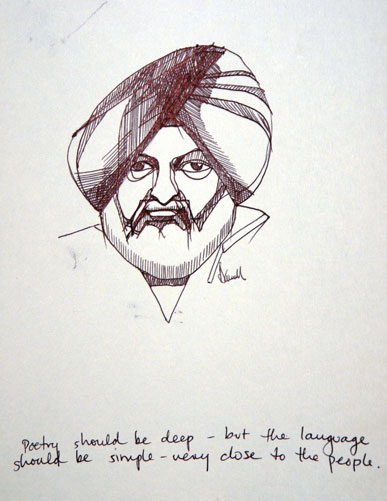 Poetry should be deep – but the language
should be simple – very close to the people.